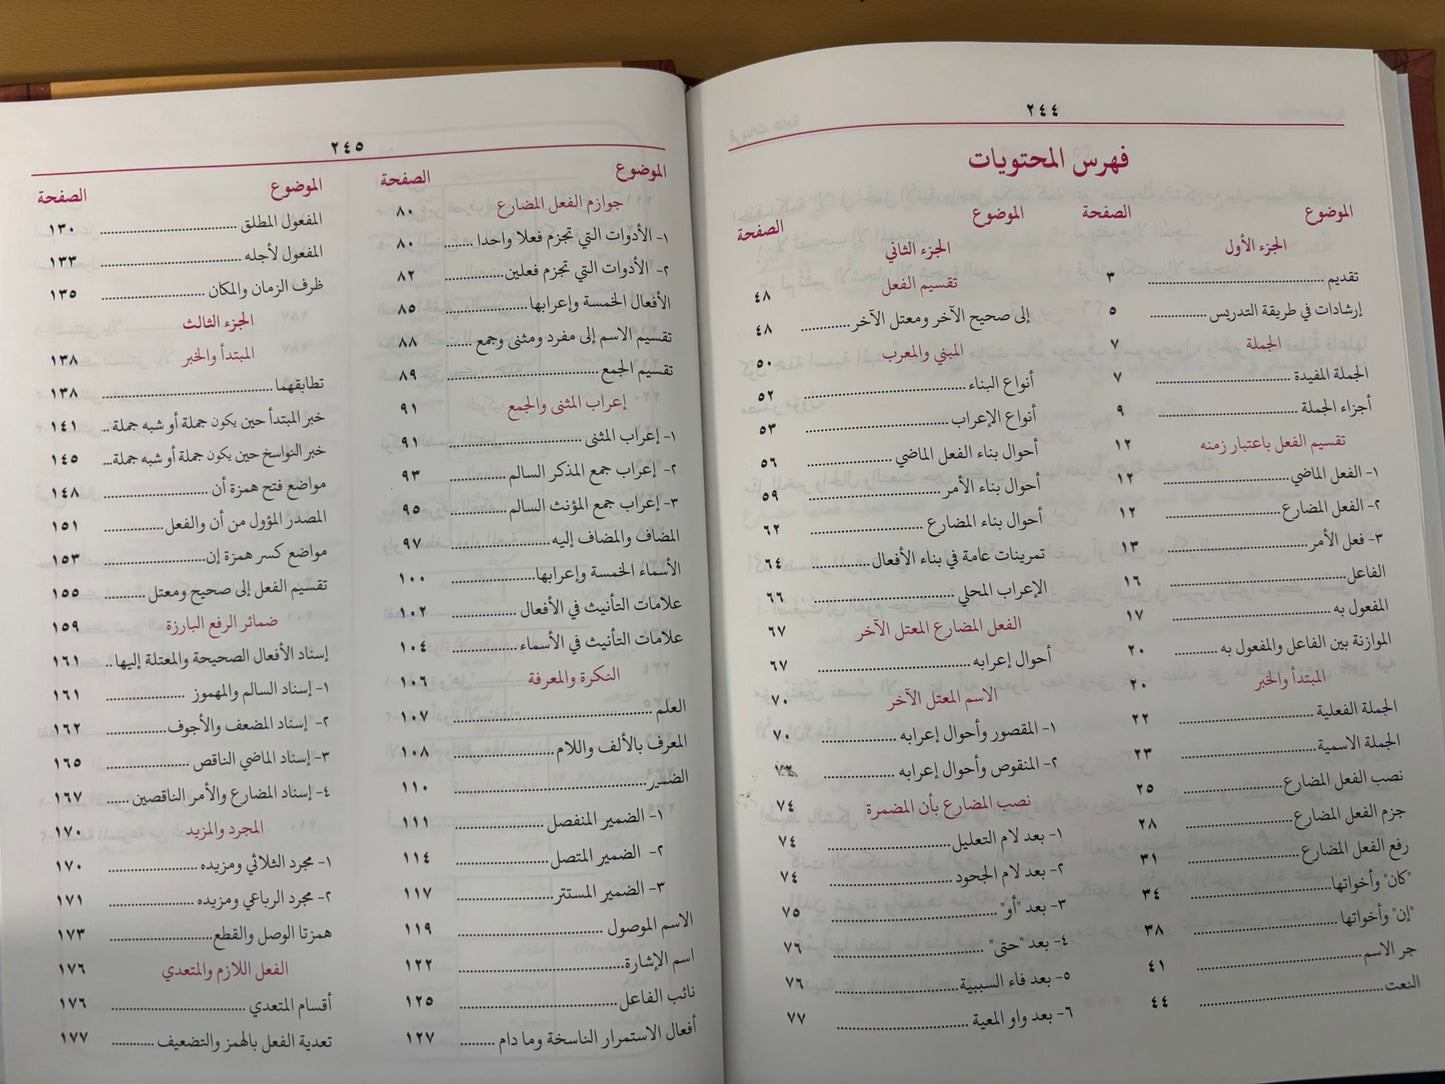 ٢٤٤
فهرس المحتويات
الموضوع الصفحة
الجزء الأول
تقديم ٣
إرشادات في طريقة التدريس ٥
الجملة ٧
الجملة المفيدة ٧
أجزاء الجملة ٩
تقسيم الفعل باعتبار زمنه ١٢
١- الفعل الماضي ١٢
٢- الفعل المضارع ١٢
٣- فعل الأمر ١٣
الفاعل ١٦
المفعول به ١٧
الموازنة بين الفاعل والمفعول به ٢٠
المبتدأ والخبر ٢٠
الجملة الفعلية ٢٢
الجملة الاسمية ٢٣
نصب الفعل المضارع ٢٥
جزم الفعل المضارع ٢٨
رفع الفعل المضارع ٣١
"كان" وأخواتها ٣٤
"إن" وأخواتها ٣٨
جر الاسم ٤١
النعت ٤٤
الموضوع الصفحة
الجزء الثاني
تقسيم الفعل ٤٨
إلى صحيح الآخر ومعتل الآخر ٤٨
المبني والمعرب ٥٠
أنواع البناء ٥٢
أنواع الإعراب ٥٣
أحوال بناء الفعل الماضي ٥٦
أحوال بناء الأمر ٥٩
أحوال بناء المضارع ٦٢
تمرينات عامة في بناء الأفعال ٦٤
الإعراب المحلي ٦٦
الفعل المضارع المعتل الآخر ٦٧
أحوال إعرابه ٦٧
الاسم المعتل الآخر ٧٠
١- المقصور وأحوال إعرابه ٧٠
٢- المنقوص وأحوال إعرابه ٧٢
نصب المضارع بأن المضمرة ٧٤
١- بعد لام التعليل ٧٤
٢- بعد لام الجحود ٧٤
٣- بعد "أو" ٧٥
٤- بعد "حتى" ٧٦
٥- بعد فاء السببية ٧٦
٦- بعد واو المعية ٧٧
٢٤٥
الموضوع الصفحة
جوازم الفعل المضارع ٨٠
١- الأدوات التي تجزم فعلا واحدا ٨٠
٢- الأدوات التي تجزم فعلين ٨٢
الأفعال الخمسة وإعرابها ٨٥
تقسيم الاسم إلى مفرد ومثنى وجمع ٨٨
تقسيم الجمع ٨٩
إعراب المثنى والجمع ٩١
١- إعراب المثنى ٩١
٢- إعراب جمع المذكر السالم ٩٣
٣- إعراب جمع المؤنث السالم ٩٥
المضاف والمضاف إليه ٩٧
الأسماء الخمسة وإعرابها ١٠٠
علامات التأنيث في الأفعال ١٠٢
علامات التأنيث في الأسماء ١٠٤
النكرة والمعرفة ١٠٦
العلم ١٠٧
المعرف بالألف واللام ١٠٨
الضمير ١١٠
١- الضمير المنفصل ١١١
٢- الضمير المتصل ١١٤
٣- الضمير المستتر ١١٧
الاسم الموصول ١١٩
اسم الإشارة ١٢٢
نائب الفاعل ١٢٥
أفعال الاستمرار الناسخة وما دام ١٢٧
الموضوع الصفحة
المفعول المطلق ١٣٠
المفعول لأجله ١٣٣
ظرف الزمان والمكان ١٣٥
الجزء الثالث
المبتدأ والخبر ١٣٨
تطابقهما ١٣٨
خبر المبتدأ حين يكون جملة أو شبه جملة ١٤١
خبر النواسخ حين يكون جملة أو شبه جملة ١٤٥
مواضع فتح همزة أن ١٤٨
المصدر المؤول من أن والفعل ١٥١
مواضع كسر همزة إن ١٥٣
تقسيم الفعل إلى صحيح ومعتل ١٥٥
ضمائر الرفع البارزة ١٥٩
إسناد الأفعال الصحيحة والمعتلة إليها ١٦١
١- إسناد السالم والمهموز ١٦١
٢- إسناد المضعف والأجوف ١٦٢
٣- إسناد الماضي الناقص ١٦٥
٤- إسناد المضارع والأمر الناقصين ١٦٧
المجرد والمزيد ١٧٠
١- مجرد الثلاثي ومزيده ١٧٠
٢- مجرد الرباعي ومزيده ١٧١
همزتا الوصل والقطع ١٧٣
الفعل اللازم والمتعدي ١٧٦
أقسام المتعدي ١٧٦
تعدية الفعل بالهمز والتضعيف ١٧٧